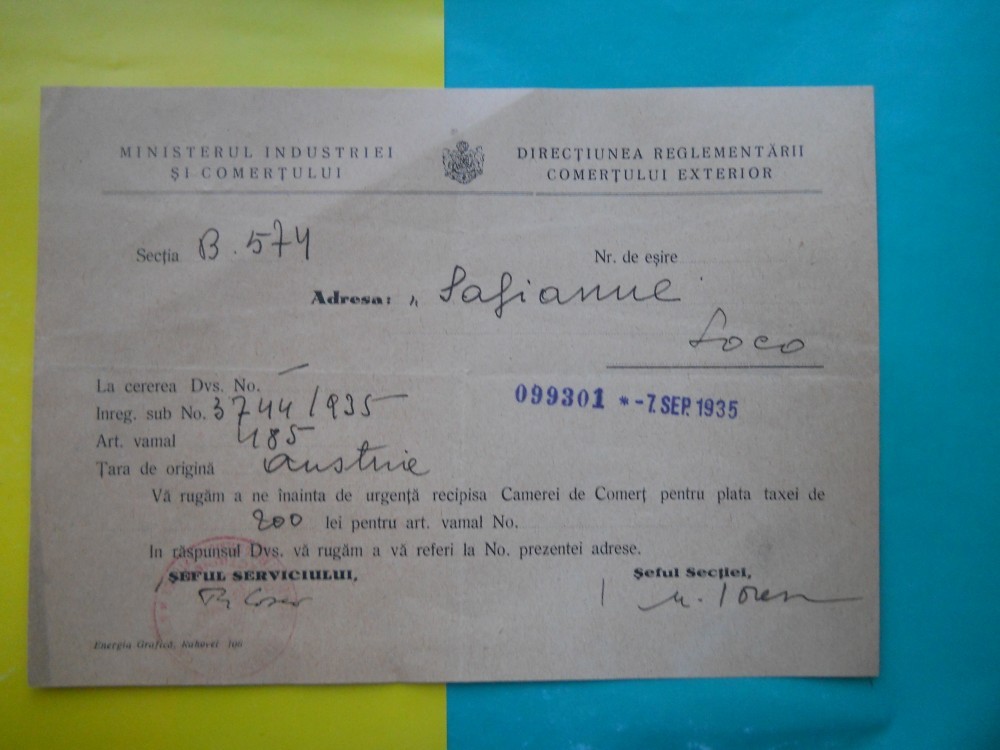 MINISTERUL INDUSTRIEI
ȘI COMERȚULUI
DIRECȚIUNEA REGLEMENTĂRII
COMERȚULUI EXTERIOR
Secția B. 574
Nr. de eșire
Adresa: „ Safianul
Loco
La cererea Dvs. No. —
Inreg. sub No. 3744/935
Art. vamal 485
Țara de origină Austrie
099301 * -7. SEP. 1935
Vă rugăm a ne înainta de urgență recipisa Camerei de Comerț pentru plata taxei de
200 lei pentru art. vamal No.
In răspunsul Dvs. vă rugăm a vă referi la No. prezentei adrese.
ȘEFUL SERVICIULUI,
Șeful Secției,
Energia Grafică, Rahovei 106